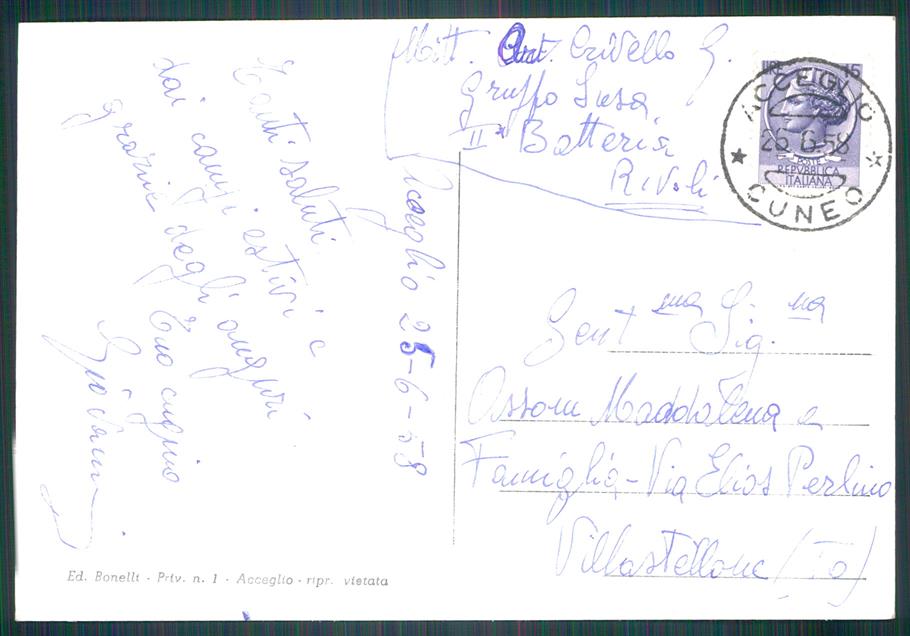 Mitt. Art. Crivello G.
Gruppo Susa
II* Batteria
Rivoli
LIRE 15
ACCEGLIO
26.6.58
CUNEO
POSTE
REPVBBLICA
ITALIANA
Acceglio 25-6-58
Tanti saluti
dai campi estivi e
grazie degli auguri
Tuo cugino
Giovanni
Gent ma Sig. na
Assom Maddalena e
Famiglia - Via Elios Perlino
Villastellone (To)
Ed. Bonelli - Priv. n. 1 - Acceglio - ripr. vietata